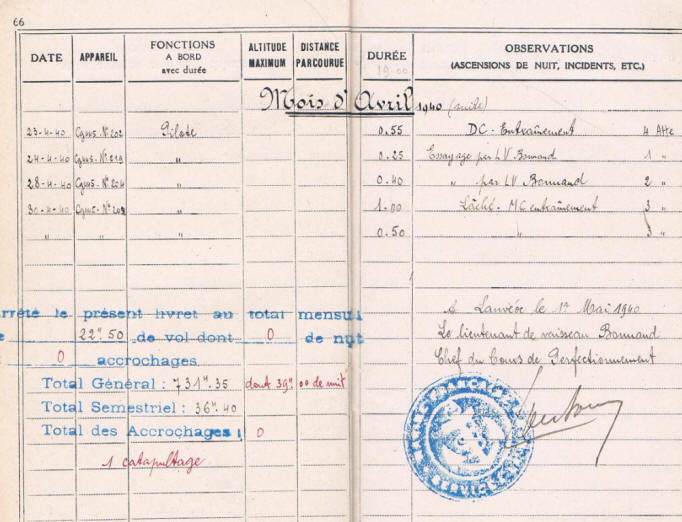 66
DATE APPAREIL FONCTIONS A BORD avec durée ALTITUDE MAXIMUM DISTANCE PARCOURUE DURÉE OBSERVATIONS (ASCENSIONS DE NUIT, INCIDENTS, ETC.)
19.00
Mois d'Avril 1940 (suite)
23-4-40 Nº 202 Pilote 0.55 DC - Entraînement 4 Atte
24-4-40 Nº 219 " 0.25 Essayage par LV Bonnand 1 "
28-4-40 Nº 204 " 0.40 " par LV Bonnand 2 "
30-4-40 Nº 202 " 1.00 Lâché - MC entraînement 3 "
" " " 0.50 " 3 "
arrêté le présent livret au total mensuel
22h.50 de vol dont 0 de nuit
0 accrochages
Total Général : 731h.35 dont 39h.00 de nuit
Total Semestriel : 36h.40
Total des Accrochages : 0
1 catapultage
A Lanvéoc le 1er Mai 1940
Le lieutenant de vaisseau Bonnand
Chef du Cours de Perfectionnement